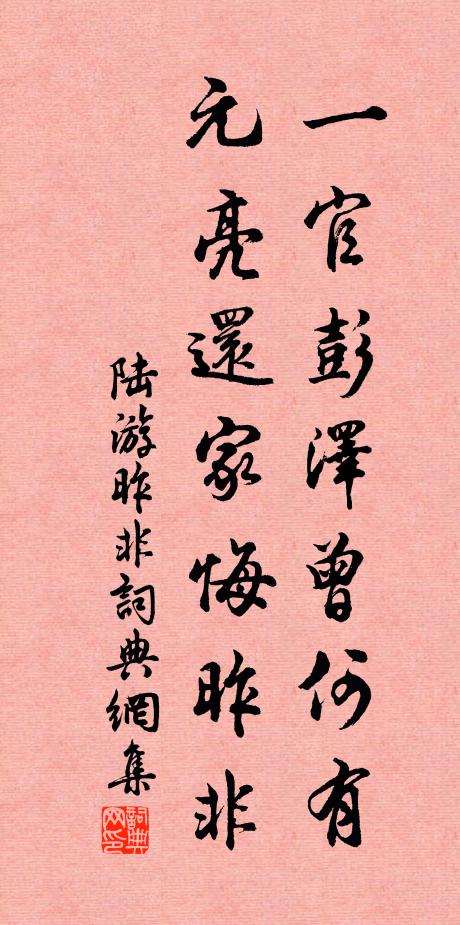 一官彭澤曾何有
元亮還家悔昨非
陆游昨非詞典網集
詞典网印